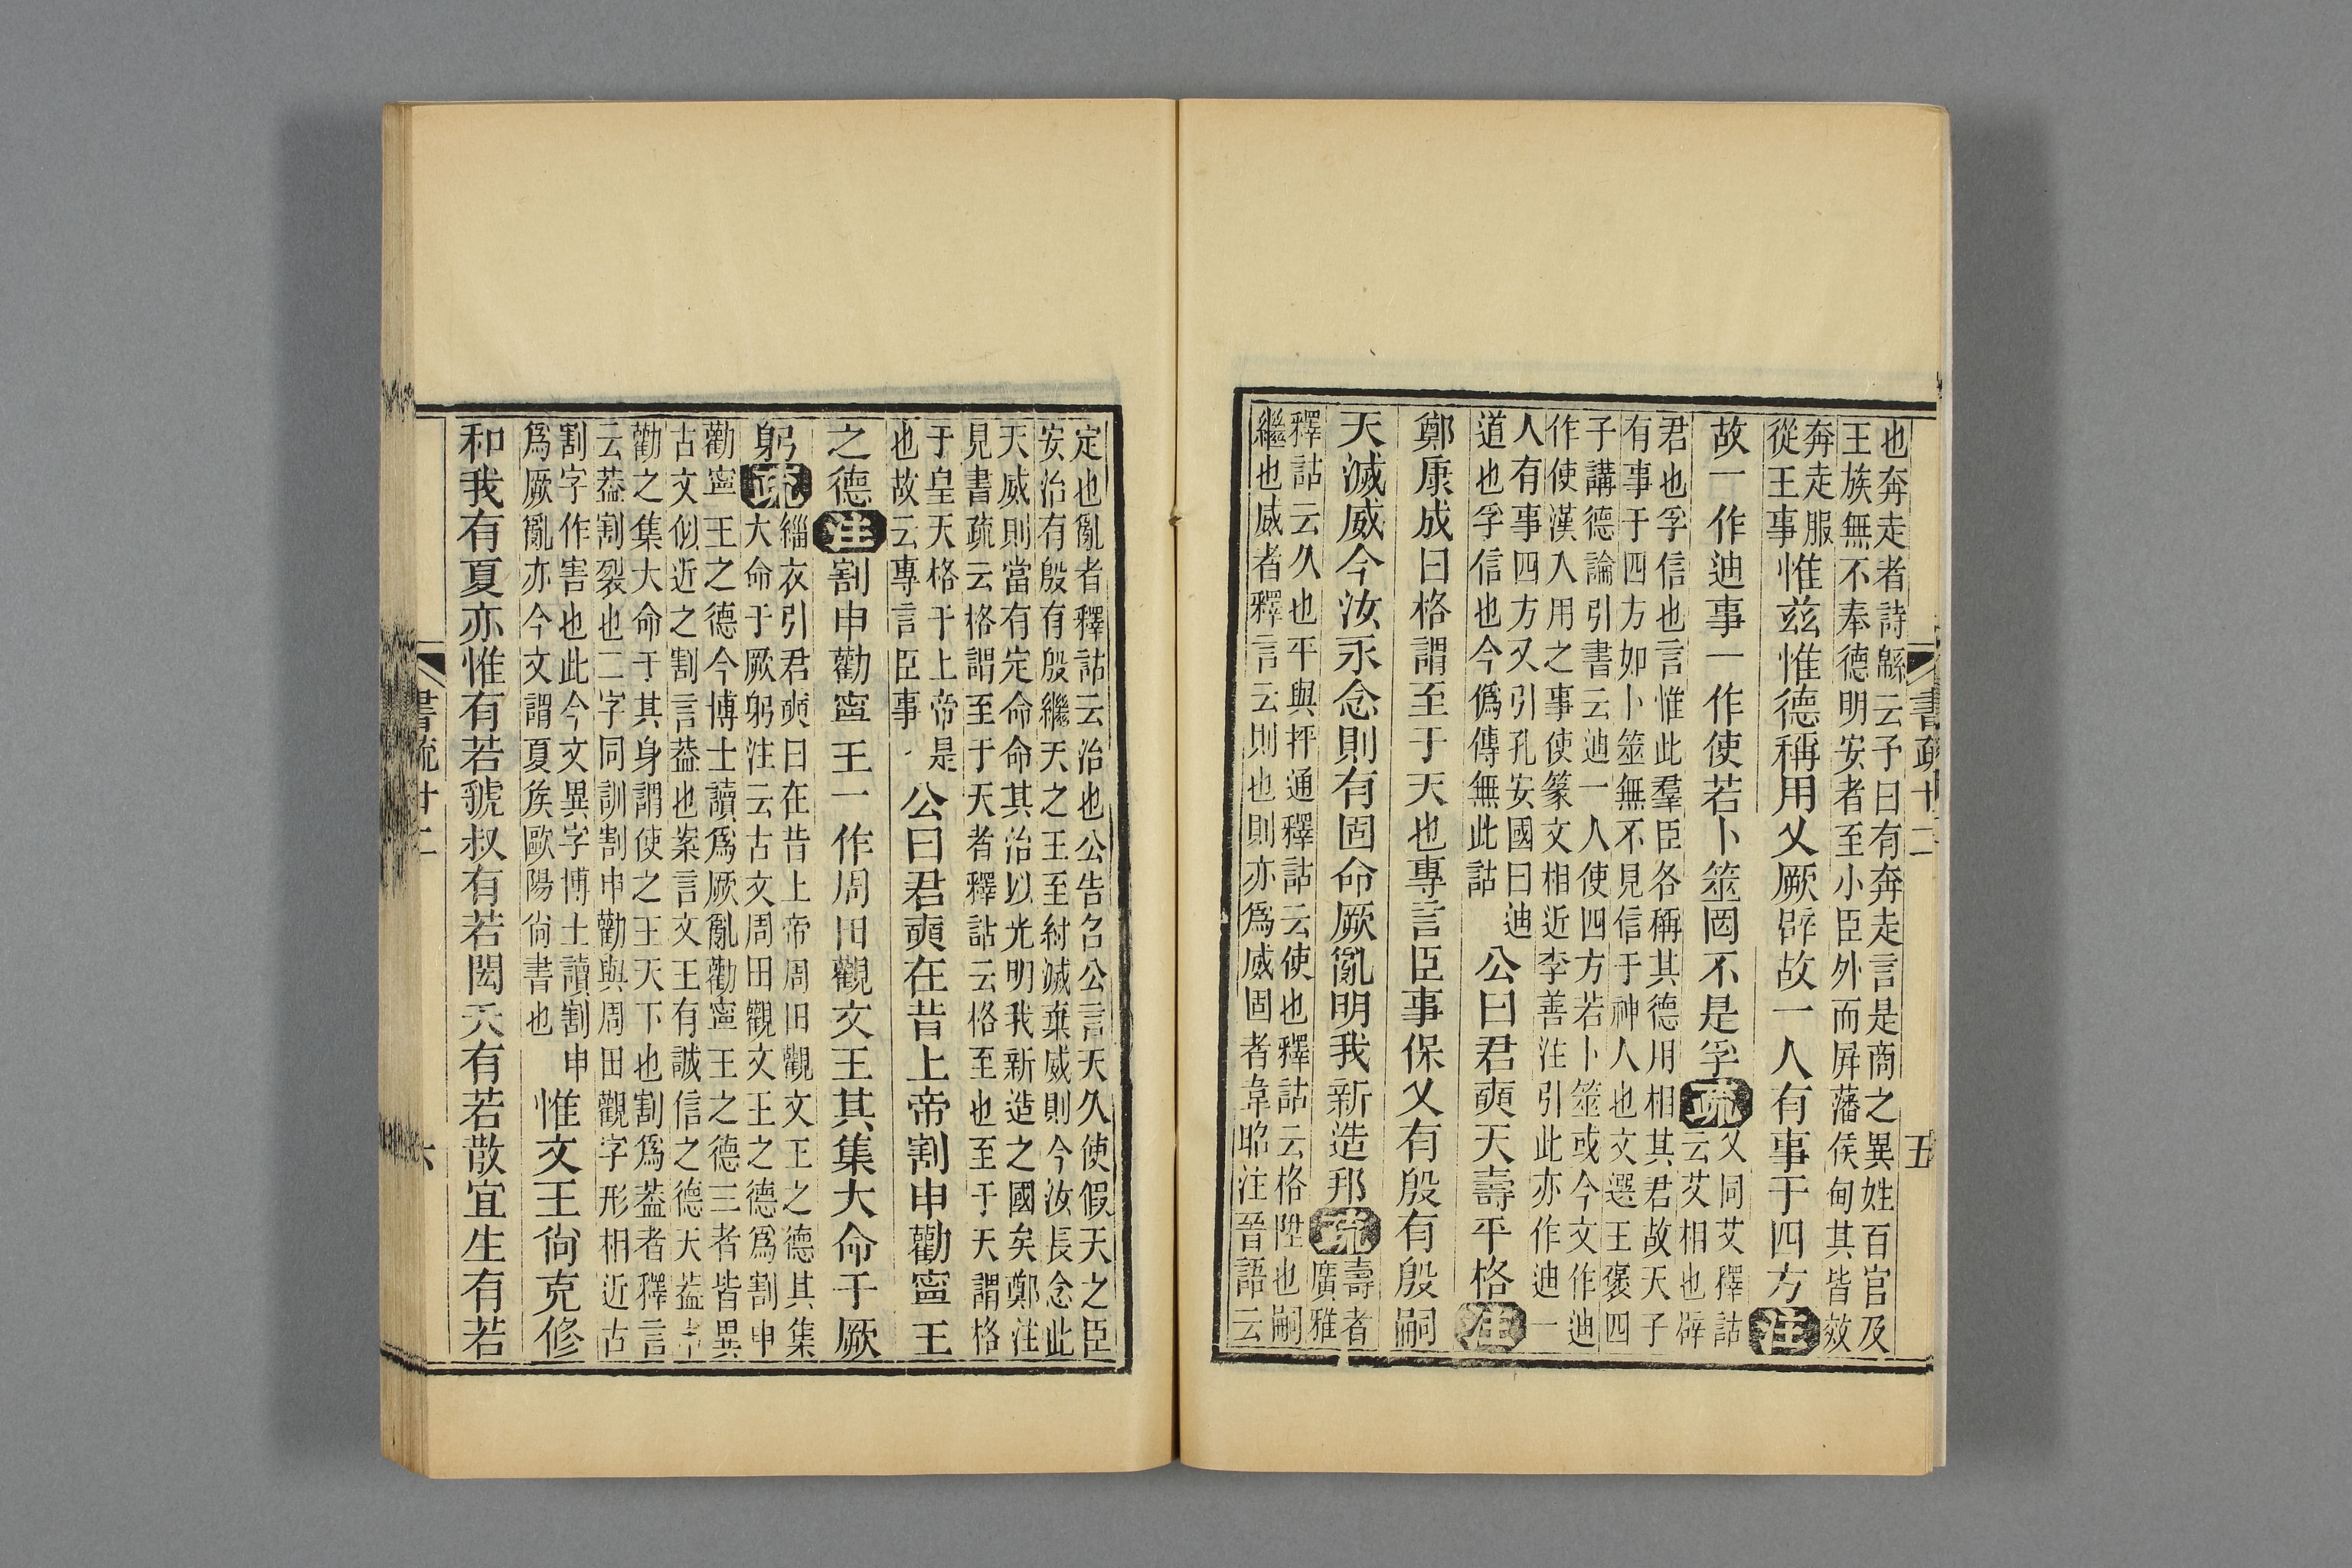 書疏廿二
五
也奔走者詩緜云予曰有奔走言是商之異姓百官及
王族無不奉德明安者至小臣外而屏藩侯甸其皆效
奔走服
從王事
惟兹惟德稱用乂厥辟故一人有事于四方注
故一作迪事一作使若卜筮罔不是孚疏
乂同艾釋詁
云艾相也辟
君也孚信也言惟此羣臣各稱其德用相其君故天子
有事于四方如卜筮無不見信于神人也文選王褒四
子講德論引書云迪一人使四方若卜筮或今文作迪
作使漢人用之事使篆文相近李善注引此亦作迪一
人有事四方又引孔安國曰迪
道也孚信也今僞傳無此詁
公曰君奭天壽平格注
鄭康成曰格謂至于天也專言臣事保乂有殷有殷嗣
天滅威今汝永念則有固命厥亂明我新造邦疏
壽者
廣雅
釋詁云久也平與抨通釋詁云使也釋詁云格陞也嗣
繼也威者釋言云則也則亦爲威固者韋昭注晉語云
定也亂者釋詁云治也公告召公言天久使假天之臣
安治有殷有殷繼天之王至紂滅棄威則今汝長念此
天威則當有定命命其治以光明我新造之國矣鄭注
見書疏云格謂至于天者釋詁云格至也至于天謂格
于皇天格于上帝是
也故云專言臣事
公曰君奭在昔上帝割申勸寧王
之德注割申勸寧王一作周田觀文王其集大命于厥
躬疏
緇衣引君奭曰在昔上帝周田觀文王之德其集
大命于厥躬注云古文周田觀文王之德爲割申
勸寧王之德今博士讀爲厥亂勸寧王之德三者皆異
古文似近之割言葢也案言文王有誠信之德天葢申
勸之集大命于其身謂使之王天下也割爲葢者釋言
云葢割裂也二字同訓割申勸與周田觀字形相近古
割字作害也此今文異字博士讀割申
爲厥亂亦今文謂夏矦歐陽尙書也
惟文王尙克修
和我有夏亦惟有若虢叔有若閎夭有若散宜生有若
書疏廿二
六